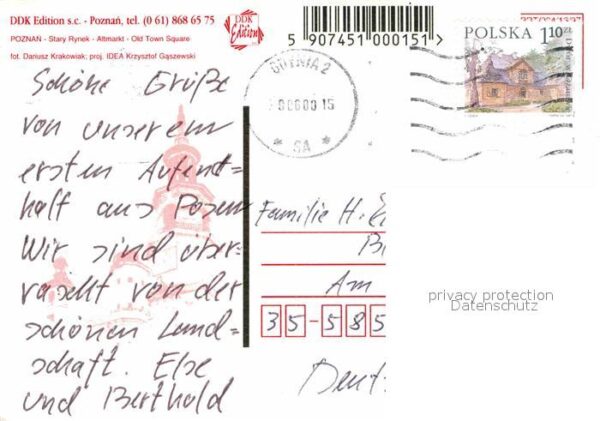 DDK Edition s.c. - Poznań, tel. (0 61) 868 65 75
POZNAŃ - Stary Rynek - Altmarkt - Old Town Square
fot. Dariusz Krakowiak; proj. IDEA Krzysztof Gąszewski
DDK
Edition
5 907451 000151
POLSKA 1,10 zł
GDYNIA 2
15
SA
Schöne Grüße
von unserem
ersten Aufent=
halt aus Posen
Wir sind über=
rascht von der
schönen Land=
schaft. Else
und Berthold
Familie H.
Am
35-585
privacy protection
Datenschutz